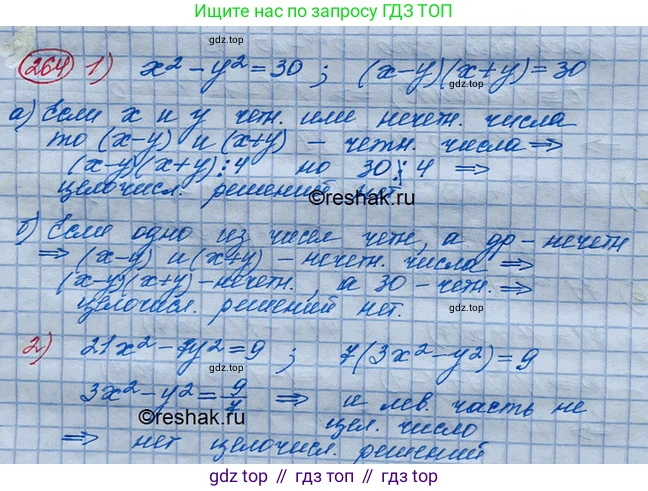 Ищите нас по запросу ГДЗ ТОП
gdz top
264 1) x² - y² = 30 ; (x-y)(x+y) = 30
а) Если x и y четн. или нечетн. числа
то (x-y) и (x+y) - четн. числа ⇒
(x-y)(x+y) ⋮ 4 но 30 ⋮̸ 4 ⇒
целочисл. решений нет.
©reshak.ru
б) Если одно из чисел четн, а др - нечетн
⇒ (x-y) и (x+y) - нечетн. числа ⇒
(x-y)(x+y) - нечетн., а 30 - четн. ⇒
целочисл. решений нет.
gdz top
2) 21x² - 7y² = 9 ; 7(3x² - y²) = 9
3x² - y² = 9/7 ⇒ и лев. часть не
©reshak.ru
цел. число
⇒ нет целочисл. решений
gdz top
gdz.top // гдз.топ // gdz.top